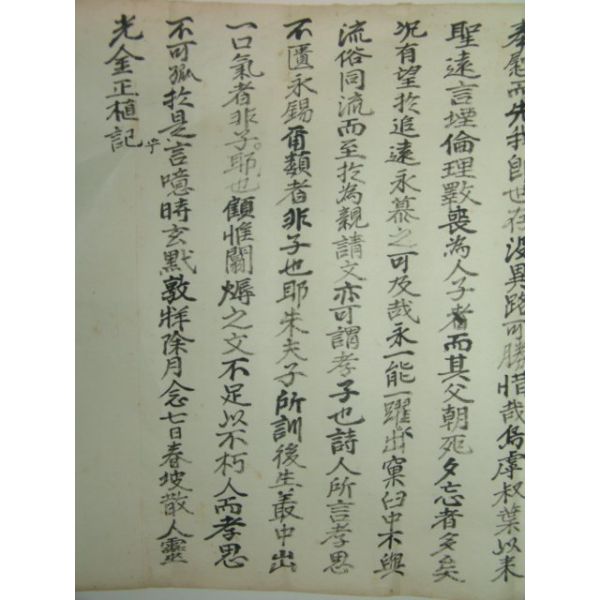 孝慰而先我卽世存沒異路可勝惜哉烏虖叔葉以來
聖遠言堙倫理斁喪為人子者而其父朝死夕忘者多矣
況有望於追遠永慕之可及哉永一能一躍出窠臼中不與
流俗同流而至於為親請文亦可謂孝子也詩人所言孝思
不匱永錫甭類者非子也耶朱夫子所訓後生叢中出
一口氣者非子耶也顧惟關焞之文不足以不朽人而孝思
不可孤於是言噫時玄黓敦牂除月念七日春坡散人靈
光金正植記